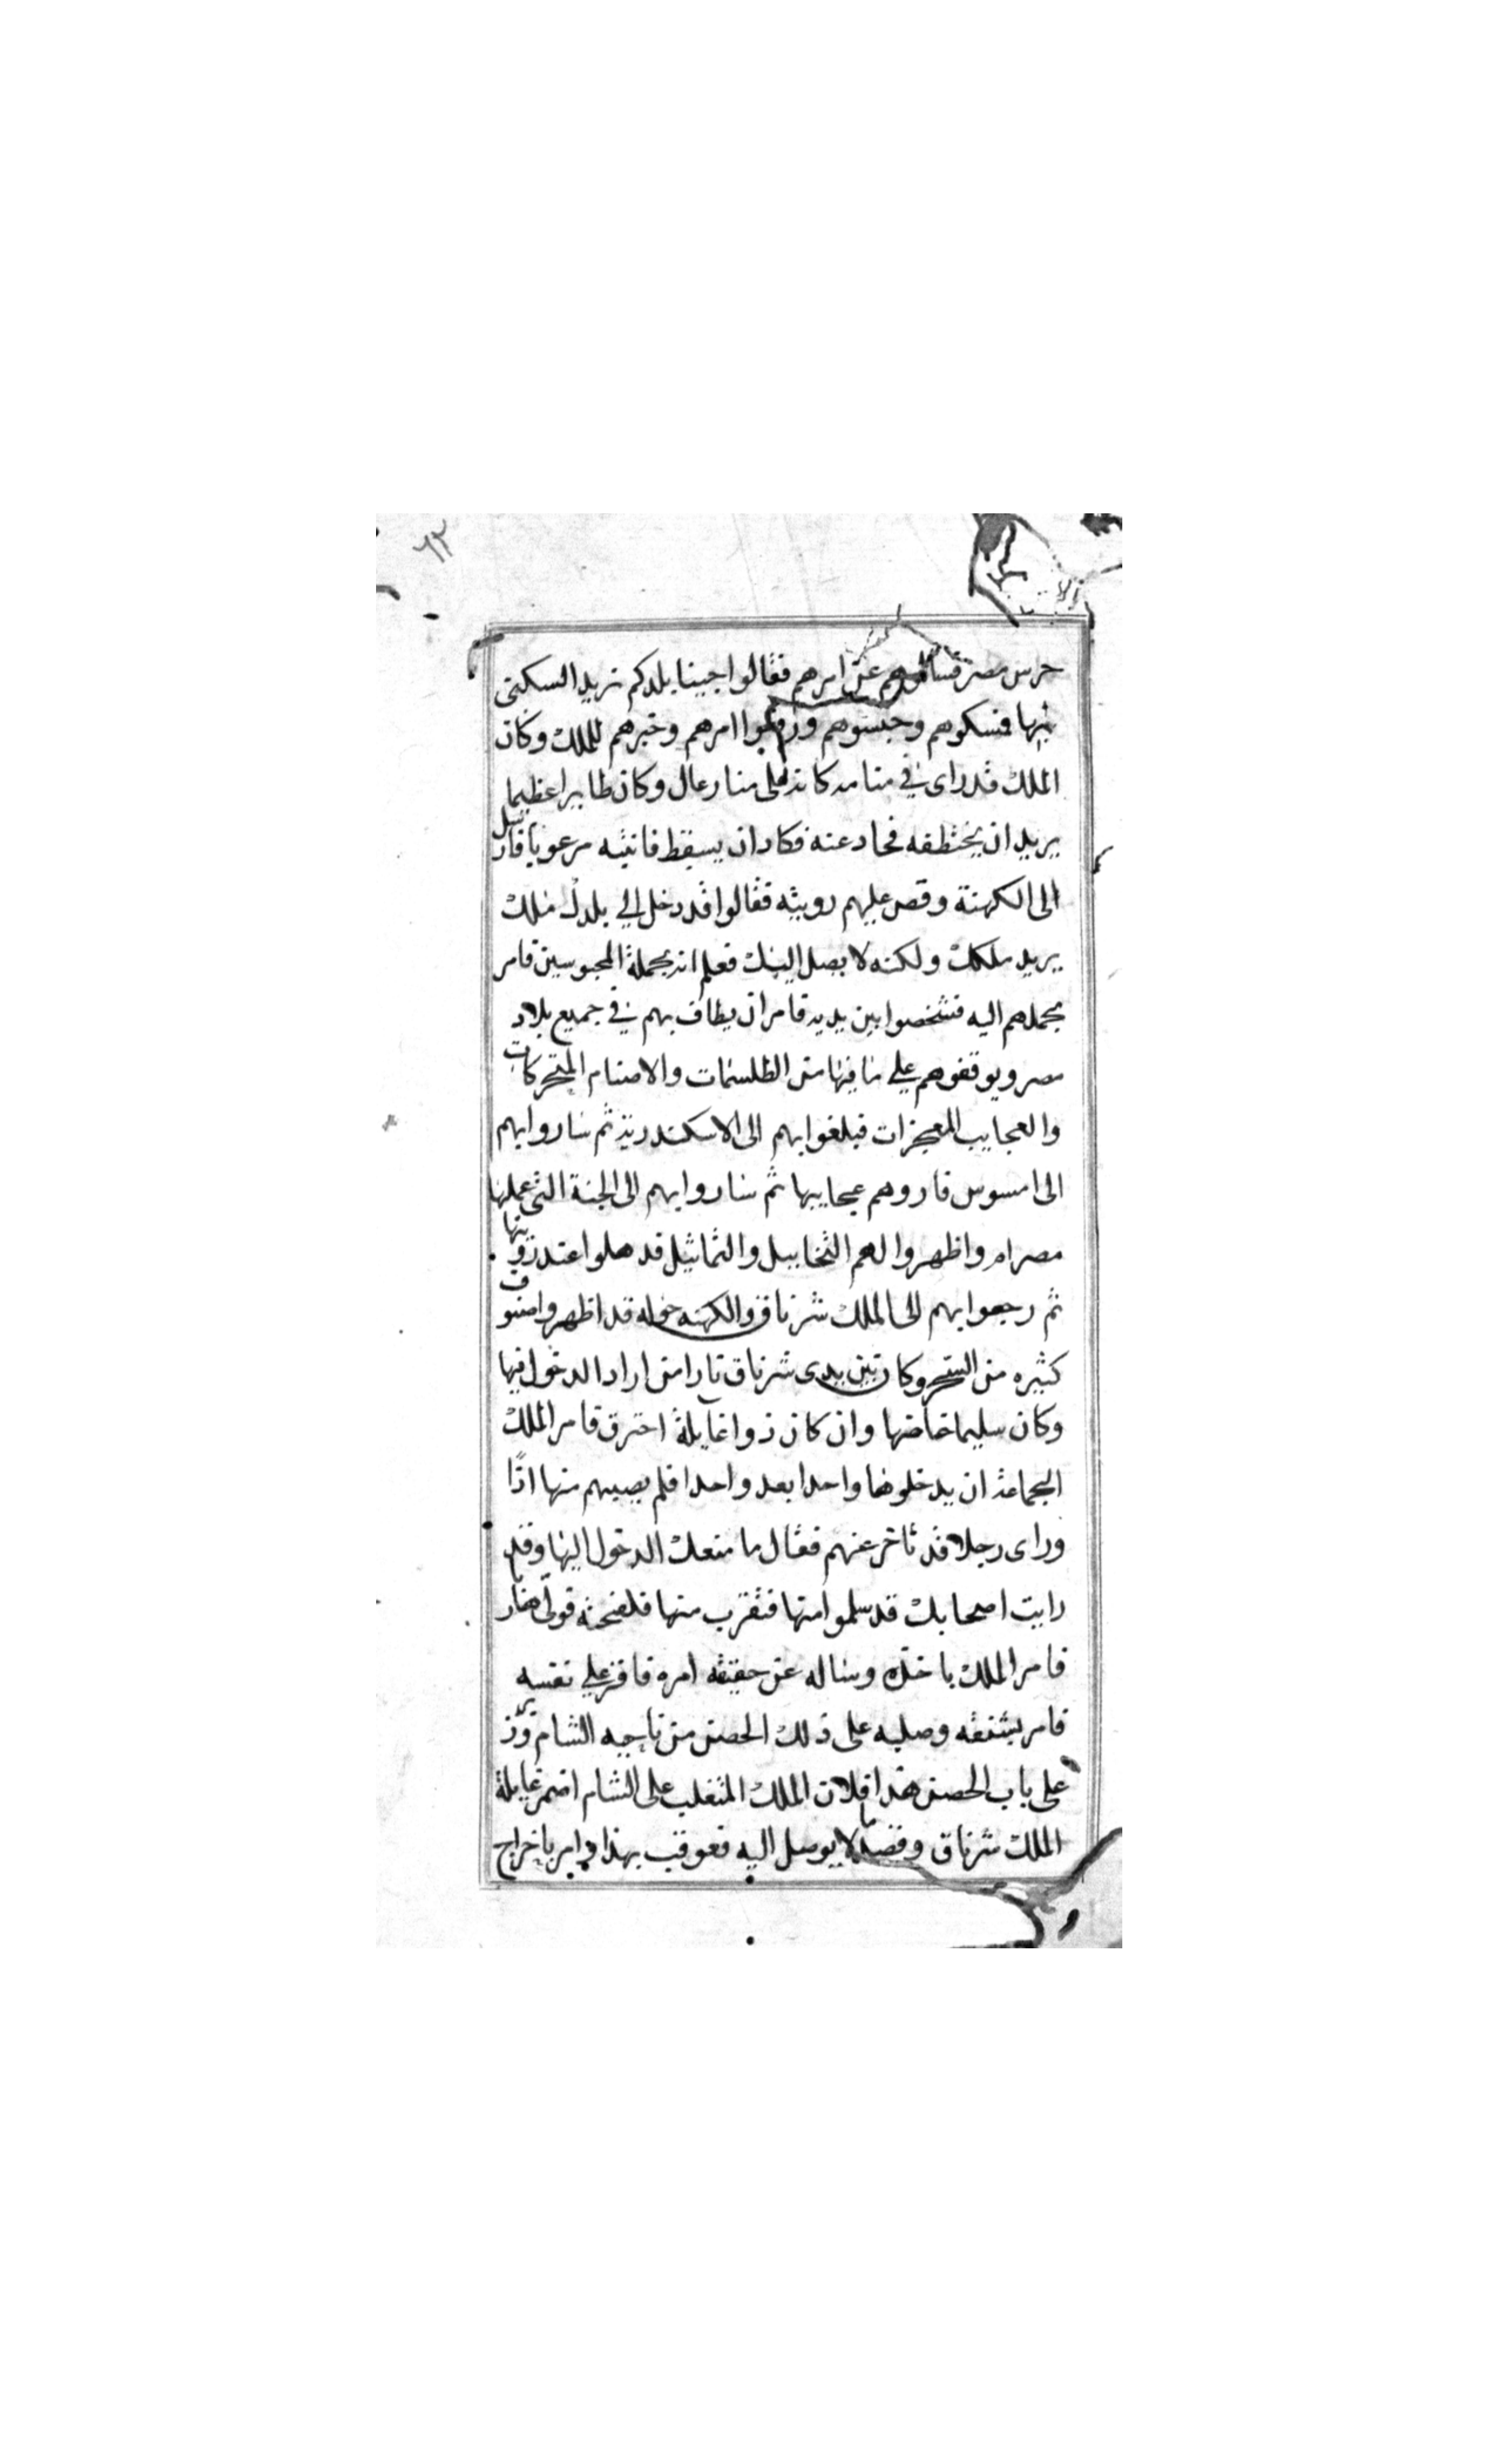 ٦٢
حرس مصر فسالوهم عن امرهم فقالوا جينا بلدكم نريد السكنى
فيها فمسكوهم وحبسوهم ورفعوا امرهم وخبرهم للملك وكان
الملك قد راى في منامه كانه على منار عال وكان طايرا عظيما
يريد ان يختطفه فحاد عنه فكاد ان يسقط فانتبه مرعوبا فارسل
الى الكهنة وقص عليهم رويته فقالوا قد دخل الي بلدك ملك
يريد ملكك ولكنه لا يصل اليك فعلم انه بجملة المحبوسين فامر
بحملهم اليه فشخصوا بين يديه فامر ان يطاف بهم في جميع بلاد
مصر ويوقفوهم علي ما فيها من الطلسمات والاصنام المتحركات
والعجايب المعجزات فبلغوا بهم الى الاسكندرية ثم ساروا بهم
الى امسوس فاروهم عجايبها ثم ساروا بهم الى الجنة التي عملها
مصرام واظهروا لهم التخاييل والتماثيل قد هلوا عند رويتها
ثم رجعوا بهم الى الملك شرناق والكهنه حوله قد اظهروا صنوف
كثيره من السحر وكان بين يدى شرناق نارا من اراد الدخول فيها
وكان سليما خاضها وان كان ذوا غايلة احترق فامر الملك
الجماعة ان يدخلوها واحدا بعد واحد فلم يصيبهم منها اذا
وراى رجلا قد تاخر عنهم فقال ما منعك الدخول اليها وقد
رايت اصحابك قد سلموا منها فتقرب منها فلفحته فولى هاربا
فامر الملك باخذه وساله عن حقيقه امره فاقر علي نفسه
فامر بشنقه وصلبه على ذلك الحصن من ناحيه الشام وزبر
على باب الحصن هذا فلان الملك المتغلب على الشام اضمر غايلة
الملك شرناق وقصد ما لا يوصل اليه فعوقب بهذا وامر باخراج